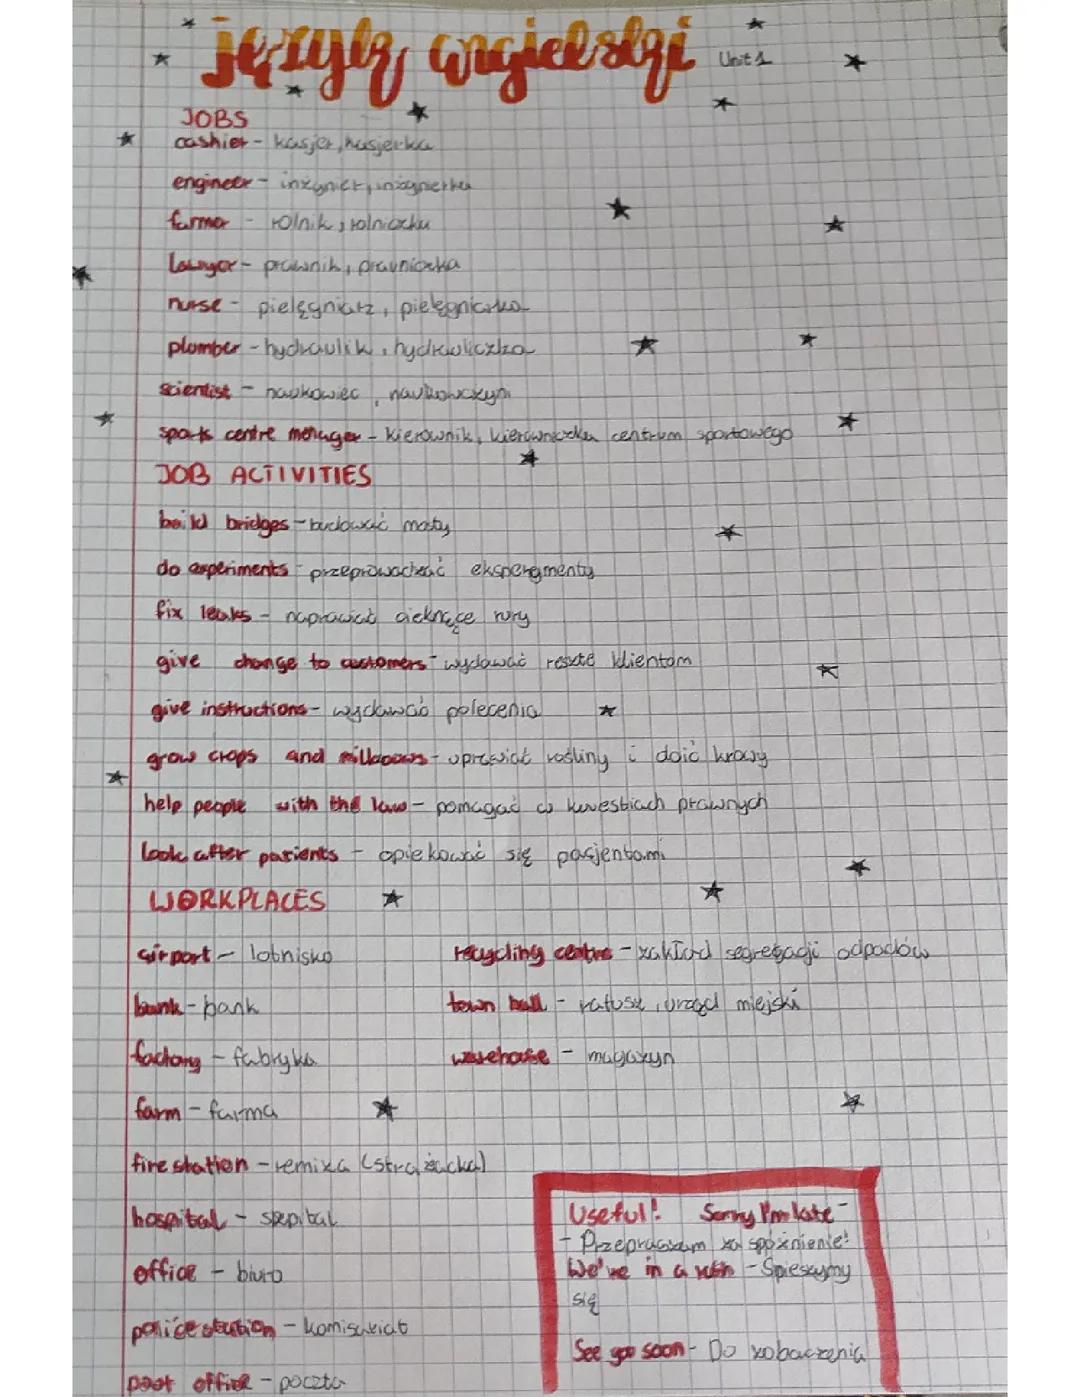 język angielski Unit 1
JOBS
cashier - kasjer, kasjerka
engineer - inżynier, inżynierka
farmer - rolnik, rolniczka
lawyer - prawnik, prawniczka
nurse - pielęgniarz, pielęgniarka
plumber - hydraulik, hydrauliczka
scientist - naukowiec, naukowczyni
sports centre manager - kierownik, kierowniczka centrum sportowego
JOB ACTIVITIES
build bridges - budować mosty
do experiments - przeprowadzać eksperymenty
fix leaks - naprawiać cieknące rury
give change to customers - wydawać resztę klientom
give instructions - wydawać polecenia
grow crops and milkcows - uprawiać rośliny i doić krowy
help people with the law - pomagać w kwestiach prawnych
look after patients - opiekować się pacjentami
WORKPLACES
airport - lotnisko
recycling centre - zakład segregacji odpadów
bank - bank
town hall - ratusz, urząd miejski
factory - fabryka
warehouse - magazyn
farm - farma
fire station - remiza (strażacka)
hospital - szpital
office - biuro
police station - komisariat
post office - poczta
Useful! Sorry I'm late -
- Przepraszam za spóźnienie!
We're in a rush - Spieszymy
się
See you soon - Do zobaczenia